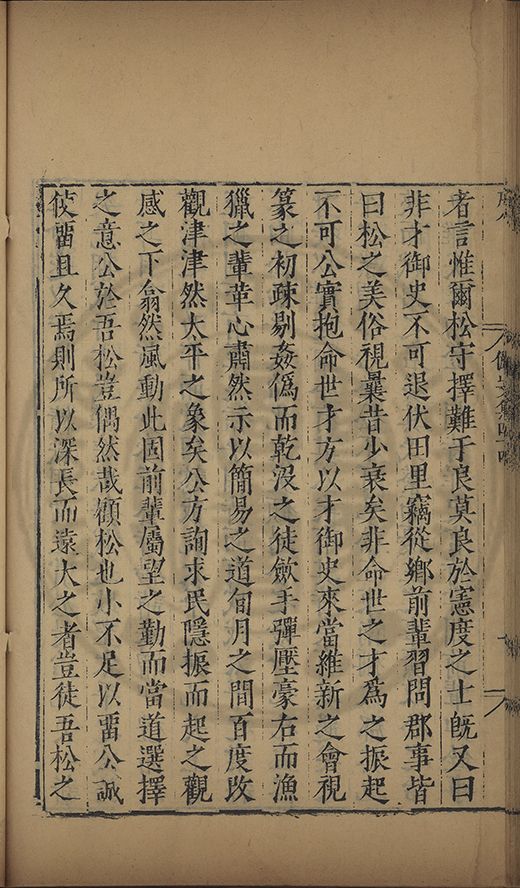 者言惟爾松守擇難于良莫良於憲度之士旣又曰
非才御史不可退伏田里竊從鄉前輩習問郡事皆
曰松之美俗視曩昔少衰矣非命世之才爲之振起
不可公實抱命世才方以才御史來當維新之會視
篆之初疎剔姦僞而乾没之徒歛手彈壓豪右而漁
獵之輩革心肅然示以簡易之道旬月之間百度改
觀津津然太平之象矣公方詢求民隱振而起之觀
感之下翕然風動此固前輩屬望之勤而當道選擇
之意公於吾松豈偶然哉顧松也小不足以畱公誠
使畱且久焉則所以深長而遠大之者豈徒吾松之